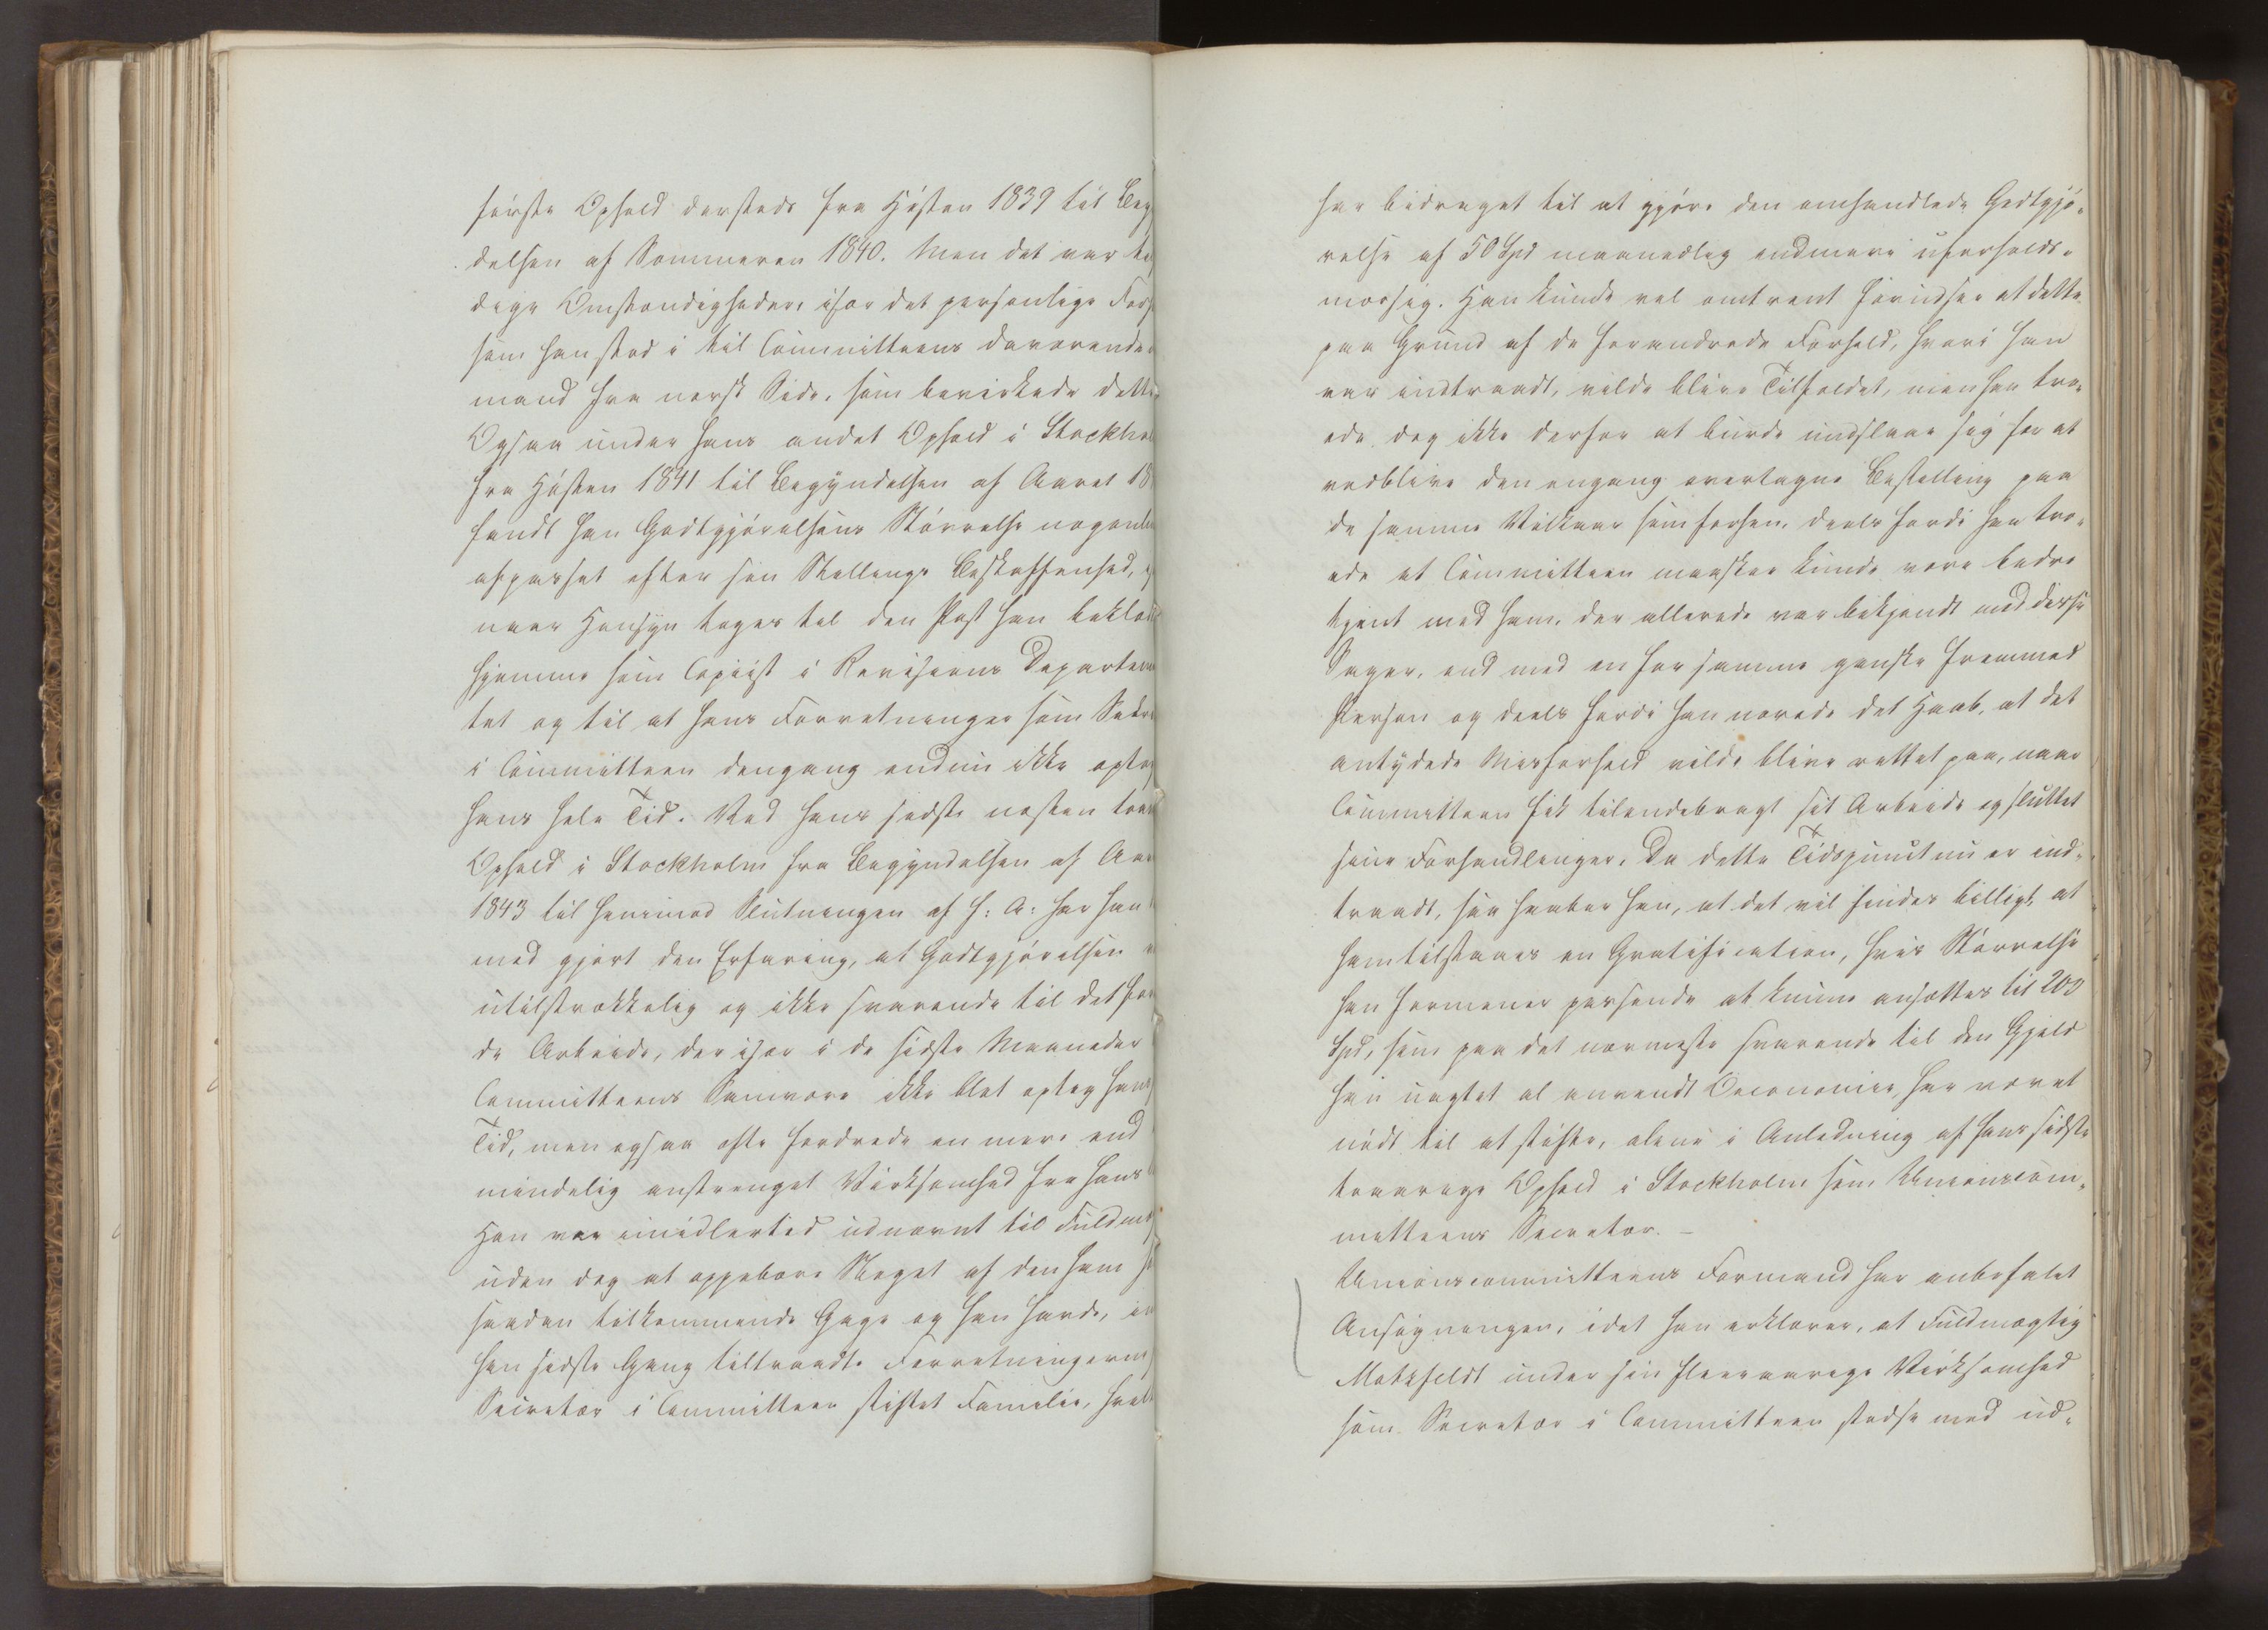 første Ophold dersteds fra Høsten 1839 til Beg
delsen af Sommeren 1840. Men det var
dige Omstændigheder, især det personlige Forh
som han stod i til Committeens daværende
mand fra norsk Side, som bevirkede dette
Ogsaa under hans andet Ophold i Stockhol
fra Høsten 1841 til Begyndelsen af Aaret 18
fandt han Godtgjørelsens Størrelse nogenl
afpasset efter sin Stillings Beskaffenhed,
naar Hensyn toges til den Post han beklæd
hjemme som Copiist i Revisions Departem
tet og til at hans Forretninger som Sekr
i Committeen dengang endnu ikke optog
hans hele Tid. Ved hans sidste næsten toa
Ophold i Stockholm fra Begyndelsen af Aar
1843 til henimod Slutningen af f: A: har han
med gjort den Erfaring, at Godtgjørelsen
utilstrækkelig og ikke svarende til det for
de Arbeide, der især i de sidste Maaneder
Committeens Samvære ikke blot optog hans
Tid, men ogsaa ofte fordrede en mere end
mindelig anstrænget Virksomhed fra hans
Han var imidlertid udnævnt til Fuldmæ
uden dog at oppebære Noget af den ham
saadan tilkommende Gage og han havde,
han sidste Gang tiltraadte Forretningerne
Secretær i Committeen stiftet Familie, hvil
har bidraget til at gjøre den omhandlede Godtgjø-
relse af 50 Spd maanedlig endmere uforholds-
mæssig. Han kunde vel omtrent forudsee at dette
paa Grund af de forandrede Forhold, hvori han
var indtraadt, vilde blive Tilfældet, men han tro-
ede dog ikke derfor at burde undslaae sig for at
vedblive den engang overtagne Bestilling paa
de samme Vilkaar som forhen, deels fordi han tro-
ede at Committeen maaskee kunde være bedre
tjent med ham, der allerede var bekjendt med disse
Sager, end med en for samme ganske fremmed
Person og deels fordi han nærede det Haab, at det
antydede Misforhold vilde blive rettet paa, naar
Committeen fik tilendebragt sit Arbeide og sluttet
sine Forhandlinger. Da dette Tidspunct nu er ind-
traadt, saa haaber han, at det vil findes billigt, at
ham tilstaaes en Gratification, hvis Størrelse
han formener passende at kunne ansættes til 200
Spd, som paa det nærmeste svarende til den Gjeld
han uagtet al anvendt Oeconomie, har været
nødt til at stifte, alene i Anledning af hans sidste
toaarige Ophold i Stockholm som Unionscom-
mitteens Secretær. –
Unionscommitteens Formand har anbefalet
Ansøgningen, idet han erklærer, at Fuldmægtig
Motzfeldt under sin fleeraarige Virksomhed
som Secretær i Committeen stedse med ud-